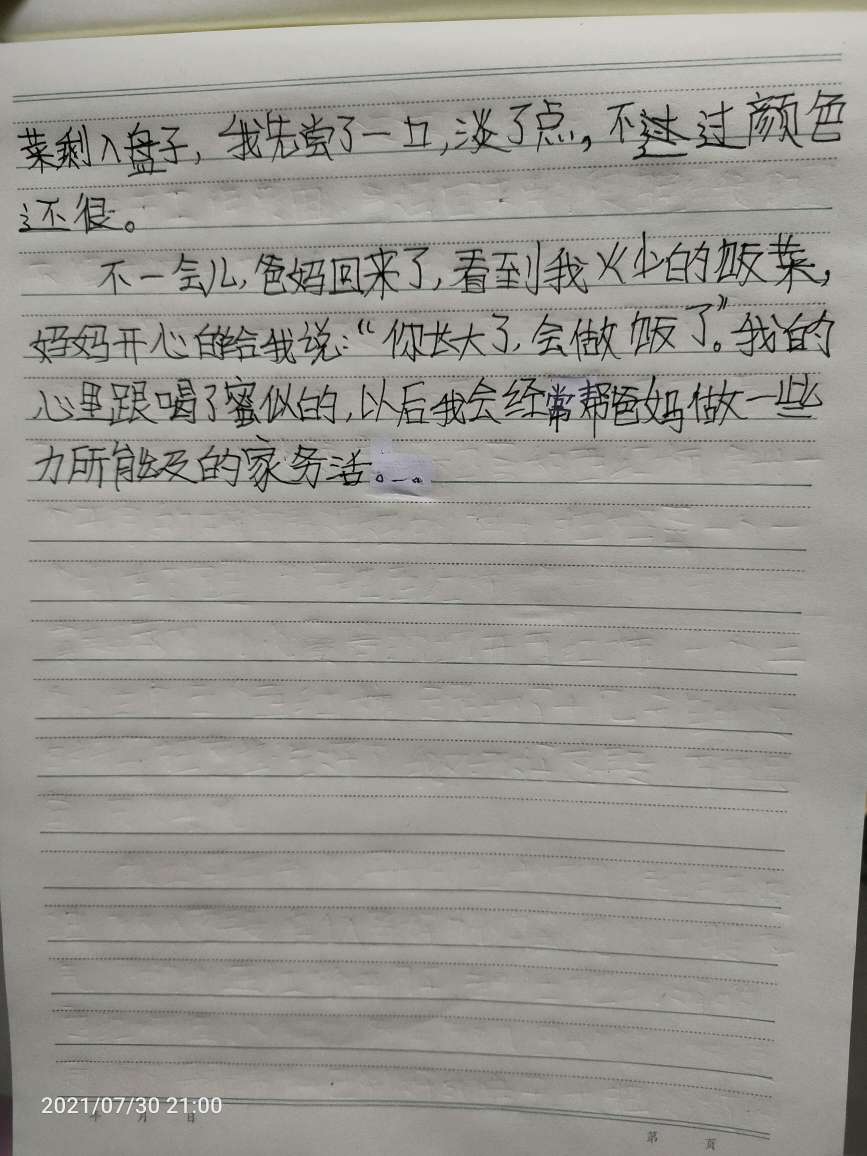 菜剩入盘子，我先尝了一口，淡了点，不过颜色
还很。
不一会儿，爸妈回来了，看到我火少的饭菜，
妈妈开心的给我说：“你长大了，会做饭了。”我的
心里跟喝了蜜似的，以后我会经常帮爸妈做一些
力所能及的家务活。
2021/07/30 21:00
年 月 日
第 页